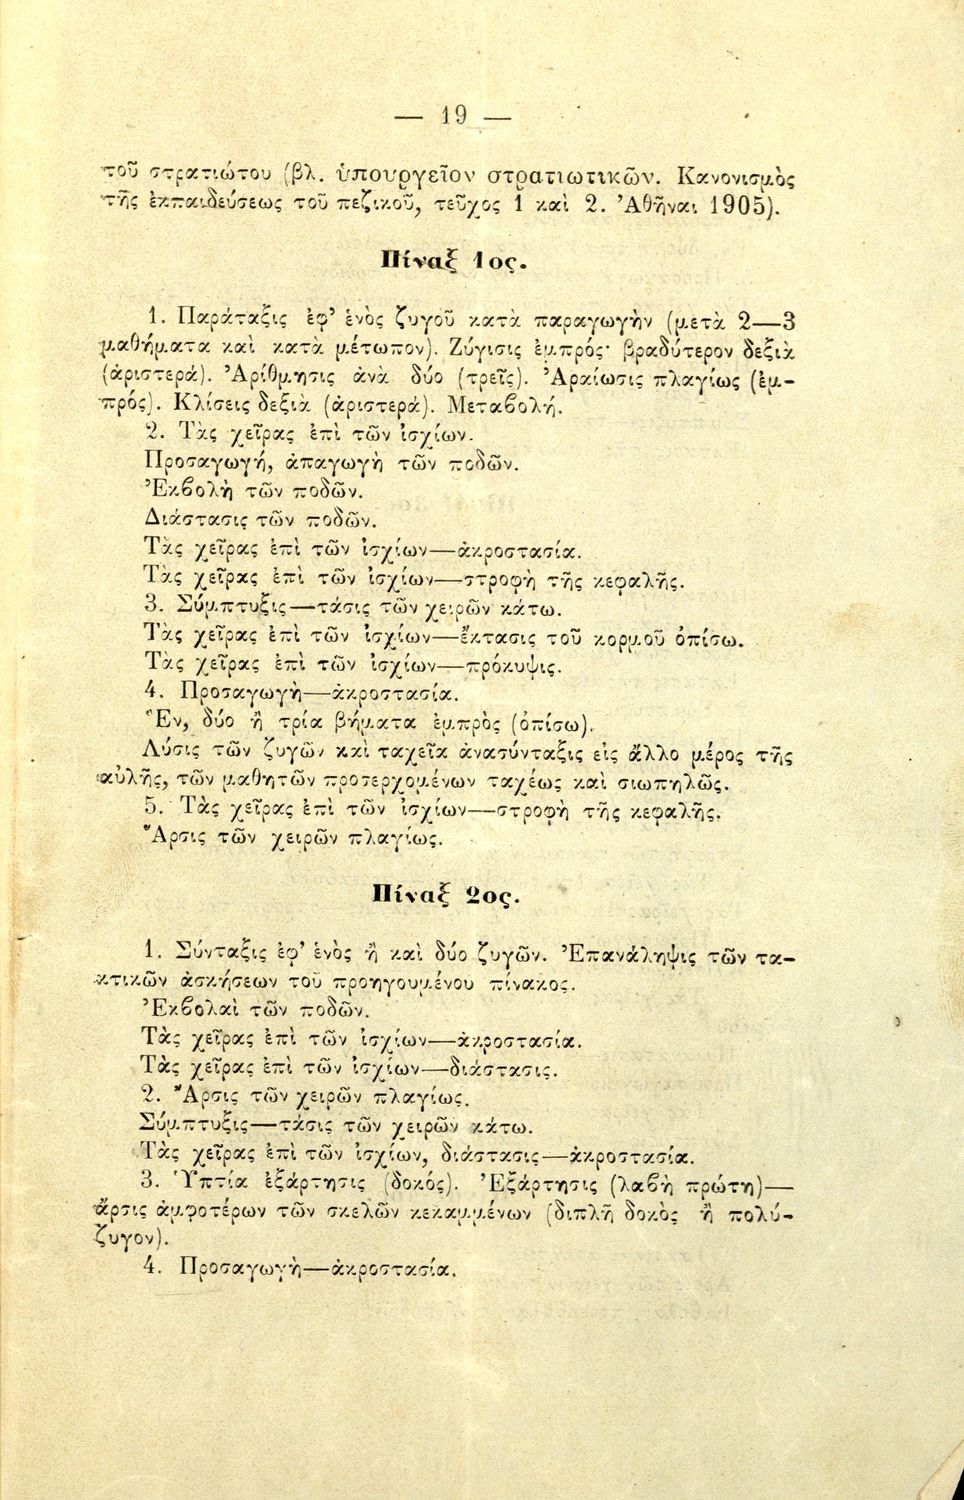 — 19 —
τοῦ στρατιώτου (βλ. ὑπουργεῖον στρατιωτικῶν. Κανονισμὸς
τῆς ἐκπαιδεύσεως τοῦ πεζικοῦ, τεῦχος 1 καὶ 2. Ἀθῆναι 1905).
Πίναξ 1ος.
1. Παράταξις ἐφ’ ἑνὸς ζυγοῦ κατὰ παραγωγὴν (μετὰ 2—3
μαθήματα καὶ κατὰ μέτωπον). Ζύγισις ἐμπρός· βραδύτερον δεξιὰ
(ἀριστερά). Ἀρίθμησις ἀνὰ δύο (τρεῖς). Ἀραίωσις πλαγίως (ἐμ-
πρός). Κλίσεις δεξιὰ (ἀριστερά). Μεταβολή.
2. Τὰς χεῖρας ἐπὶ τῶν ἰσχίων.
Προσαγωγή, ἀπαγωγὴ τῶν ποδῶν.
Ἐκβολὴ τῶν ποδῶν.
Διάστασις τῶν ποδῶν.
Τὰς χεῖρας ἐπὶ τῶν ἰσχίων—ἀκροστασία.
Τὰς χεῖρας ἐπὶ τῶν ἰσχίων—στροφὴ τῆς κεφαλῆς.
3. Σύμπτυξις—τάσις τῶν χειρῶν κάτω.
Τὰς χεῖρας ἐπὶ τῶν ἰσχίων—ἔκτασις τοῦ κορμοῦ ὀπίσω.
Τὰς χεῖρας ἐπὶ τῶν ἰσχίων—πρόκυψις.
4. Προσαγωγὴ—ἀκροστασία.
Ἕν, δύο ἢ τρία βήματα ἐμπρὸς (ὀπίσω).
Λύσις τῶν ζυγῶν καὶ ταχεῖα ἀνασύνταξις εἰς ἄλλο μέρος τῆς
αὐλῆς, τῶν μαθητῶν προσερχομένων ταχέως καὶ σιωπηλῶς.
5. Τὰς χεῖρας ἐπὶ τῶν ἰσχίων—στροφὴ τῆς κεφαλῆς.
Ἄρσις τῶν χειρῶν πλαγίως.
Πίναξ 2ος.
1. Σύνταξις ἐφ’ ἑνὸς ἢ καὶ δύο ζυγῶν. Ἐπανάληψις τῶν τα-
κτικῶν ἀσκήσεων τοῦ προηγουμένου πίνακος.
Ἐκβολαὶ τῶν ποδῶν.
Τὰς χεῖρας ἐπὶ τῶν ἰσχίων—ἀκροστασία.
Τὰς χεῖρας ἐπὶ τῶν ἰσχίων—διάστασις.
2. Ἄρσις τῶν χειρῶν πλαγίως.
Σύμπτυξις—τάσις τῶν χειρῶν κάτω.
Τὰς χεῖρας ἐπὶ τῶν ἰσχίων, διάστασις—ἀκροστασία.
3. Ὑπτία ἐξάρτησις (δοκός). Ἐξάρτησις (λαβὴ πρώτη)—
ἄρσις ἀμφοτέρων τῶν σκελῶν κεκαμμένων (διπλῆ δοκὸς ἢ πολύ-
ζυγον).
4. Προσαγωγὴ—ἀκροστασία.